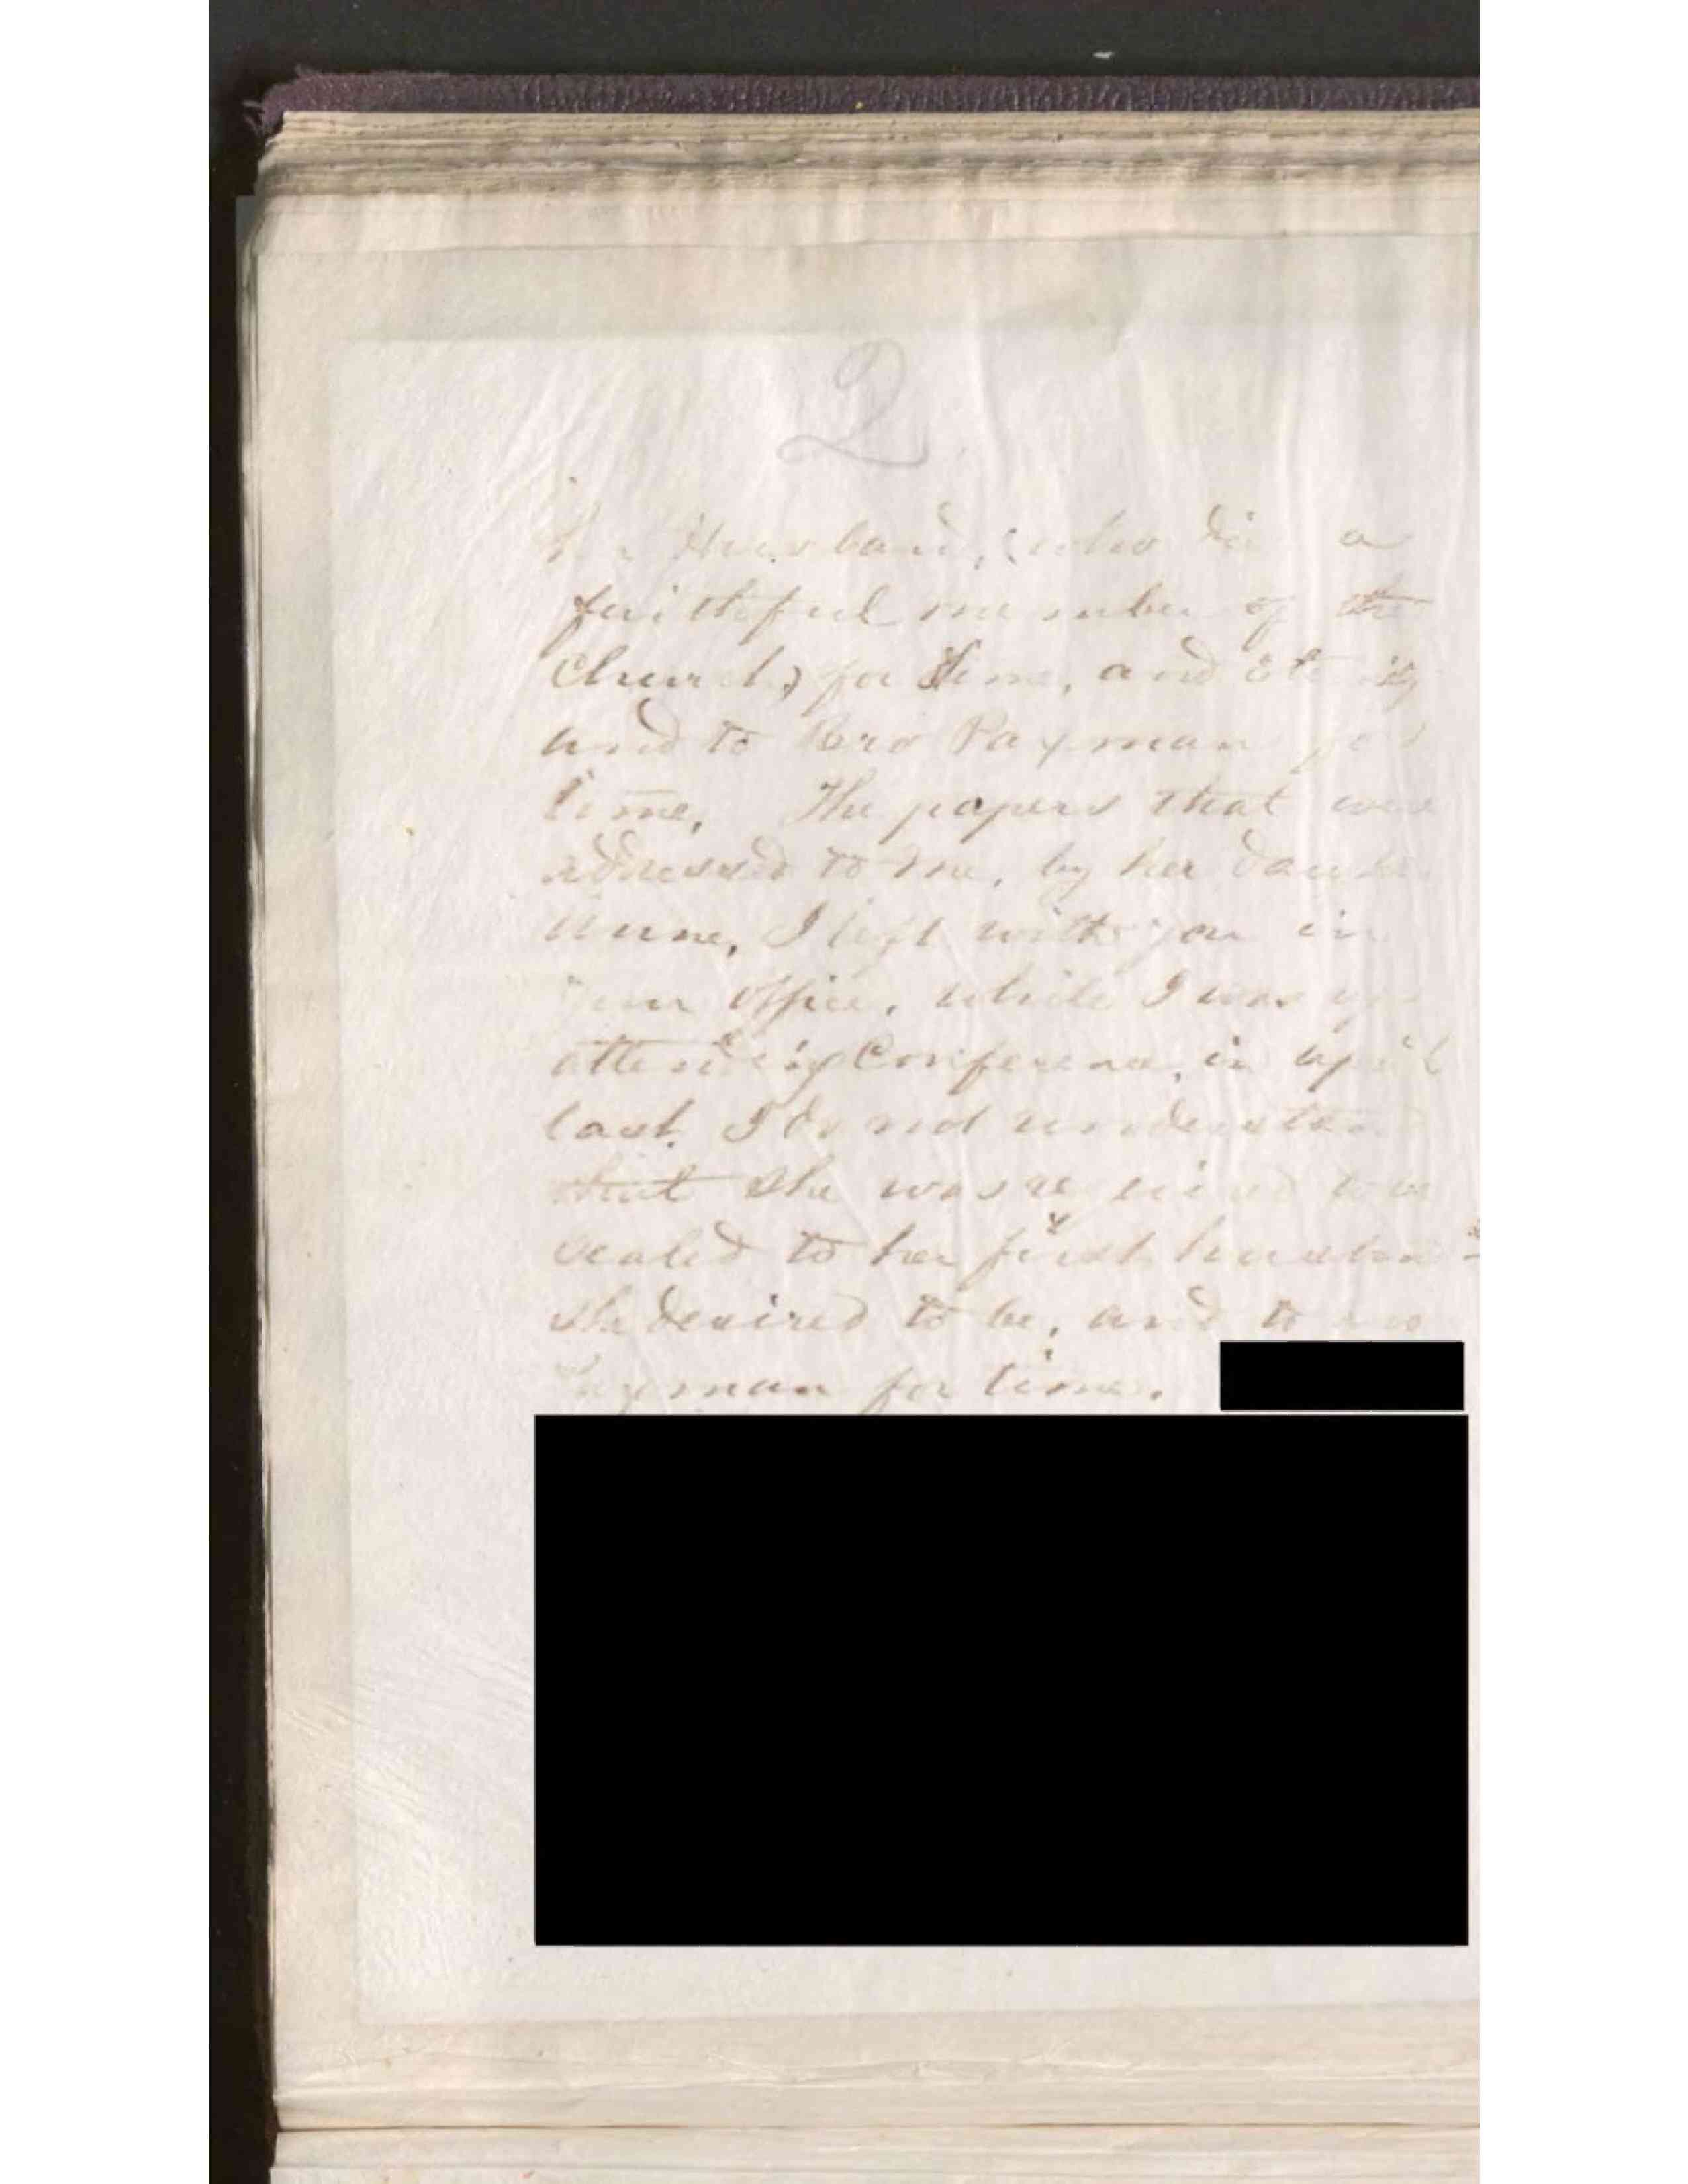 2
Husband, (who die a
faithful member of the
Church) for time, and Eternity
and to Bro Paxman for
time. The papers that were
addressed to me, by her daughter
Anne, I left with you in
your office, while I was
attending Conference, in April
last. I do not understand
that she was
sealed to her first husband
she desired to be, and to
Paxman for time.